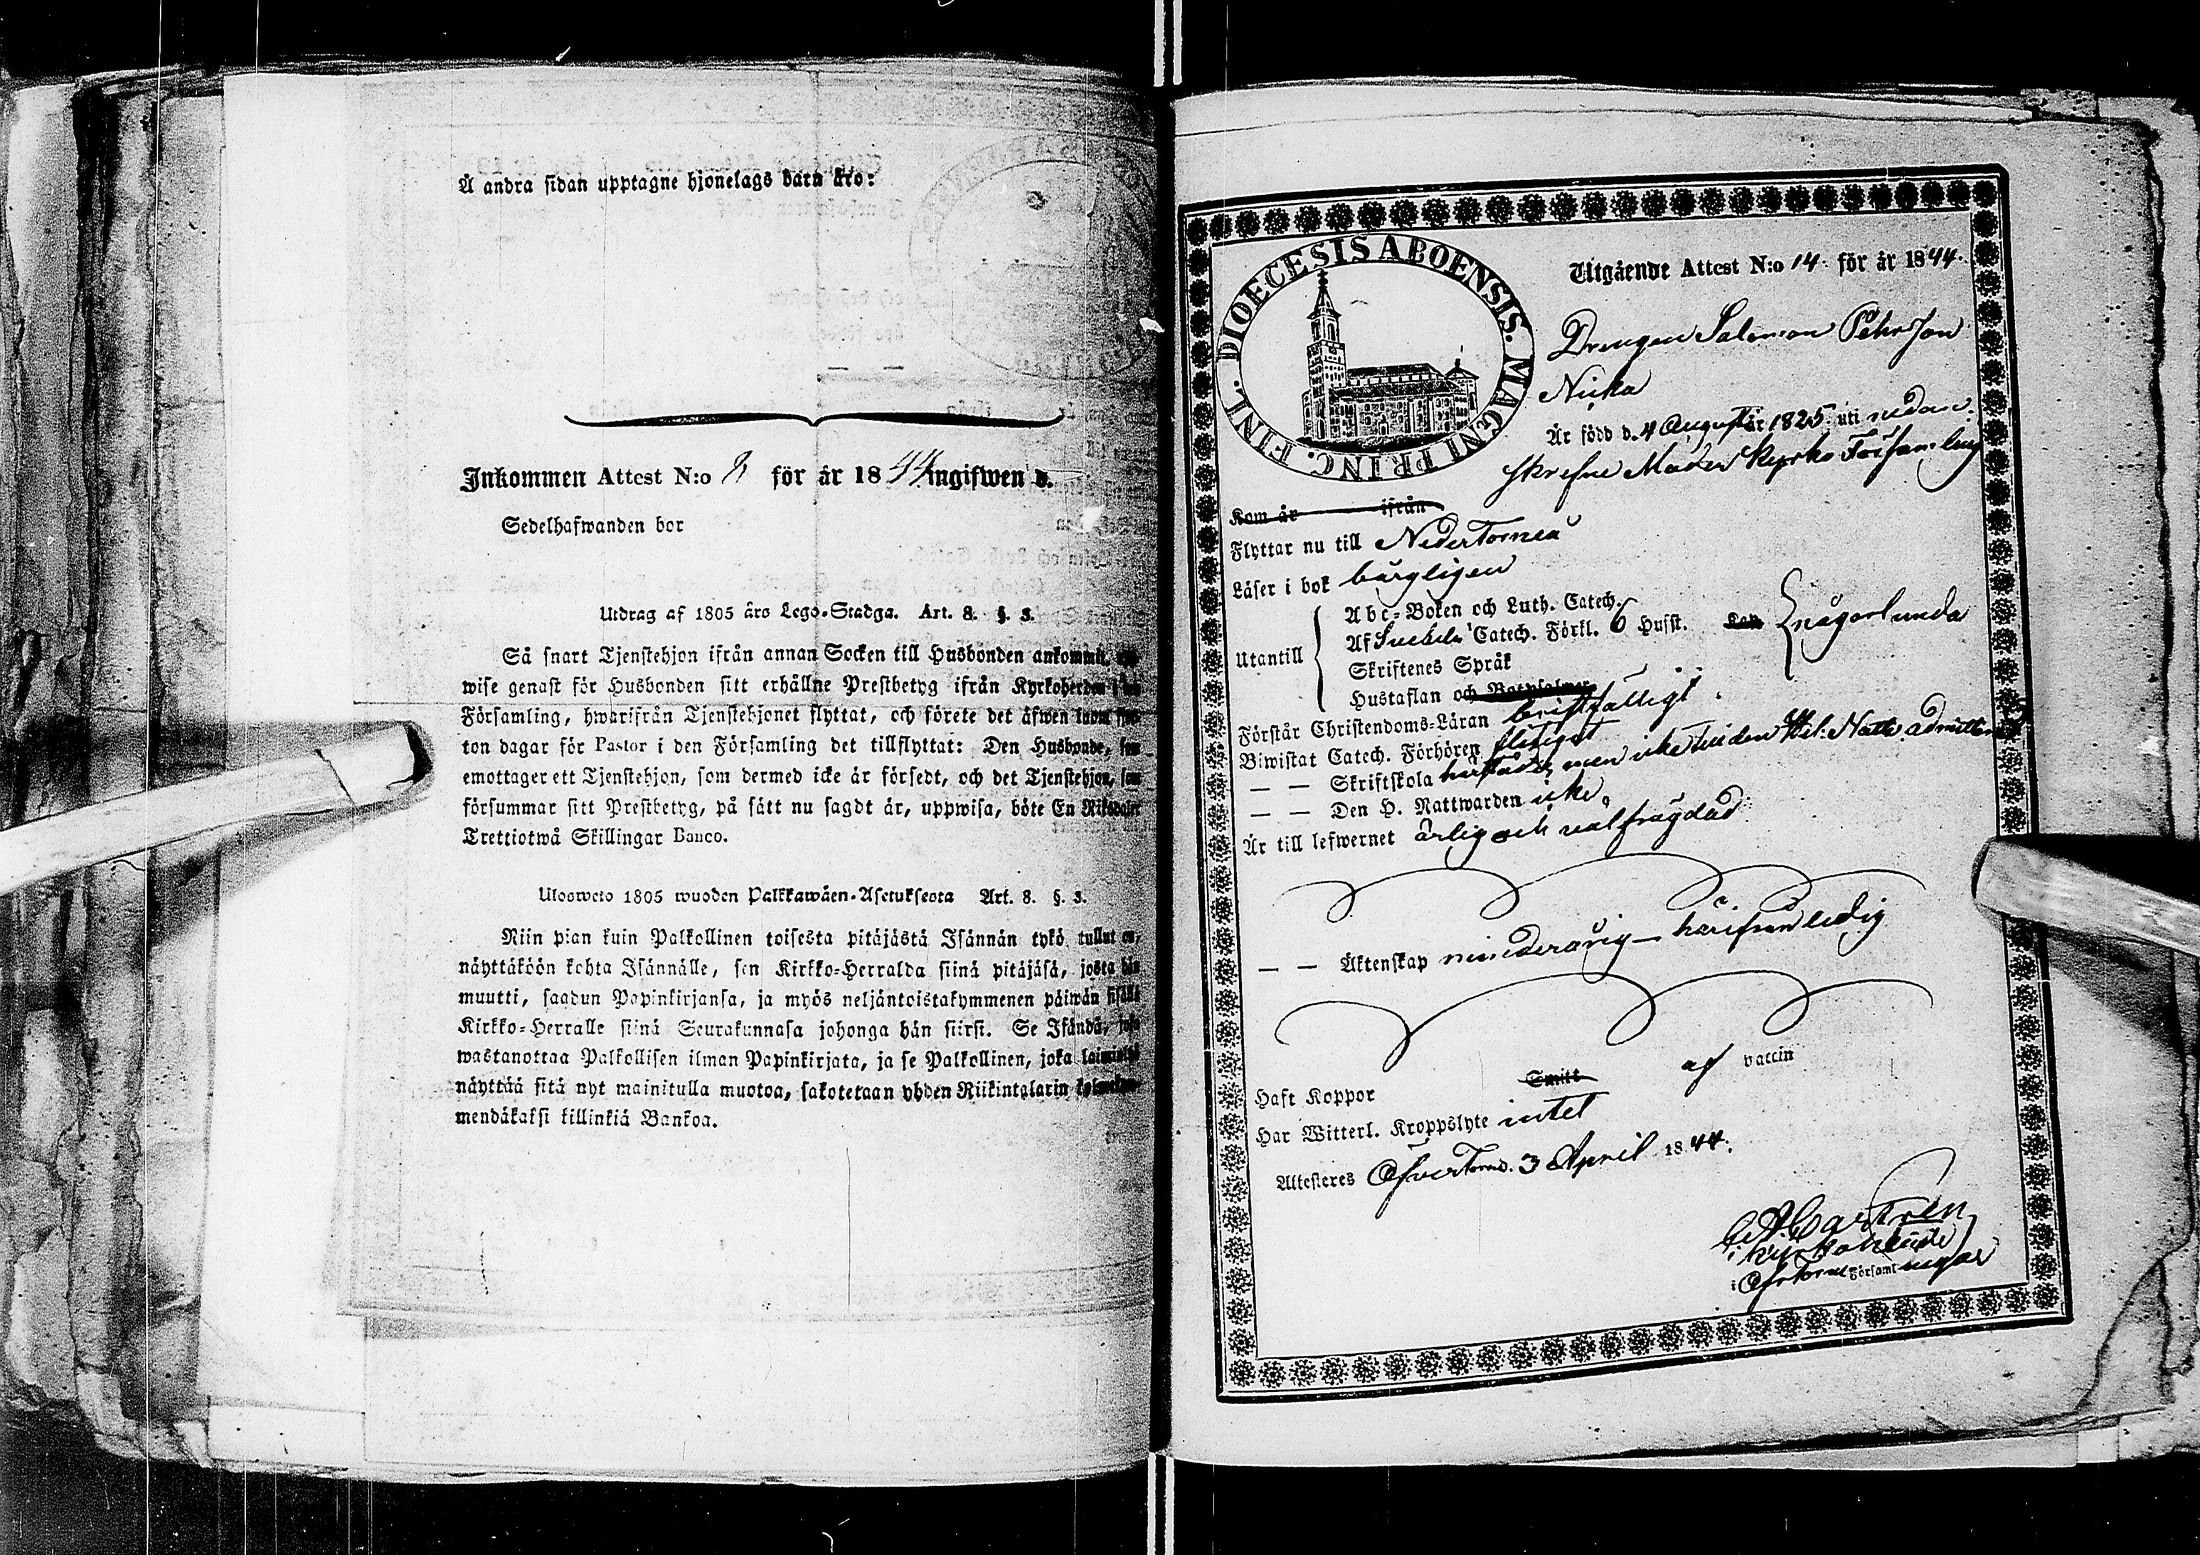 Å andra sidan upptagne hjonelags barn äro:
Inkommen Attest N:o 8 för år 1844 ingifwen d.
Sedelhafwanden bor
Utdrag af 1805 års Lego-Stadga. Art. 8. §. 3.
Så snart Tjenstehjon ifrån annan Socken till Husbonden ankommit,
wise genast för Husbonden sitt erhållne Prestbetyg ifrån Kyrkoherden
Församling, hwarifrån Tjenstehjonet flyttat, och förete det äfwen inom
ton dagar för Pastor i den Församling det tillflyttat: Den Husbonde, som
emottager ett Tjenstehjon, som dermed icke är försedt, och det Tjenstehjon, som
försummar sitt Prestbetyg, på sätt nu sagdt är, uppwisa, böte En Riksdaler
Trettiotwå Skillingar Banco.
Uloswcto 1805 wuoden Palkkawäen-Asetuksesta Art. 8. §. 3.
Niin pian kuin Palkollinen toisesta pitäjästä Isännän tykö tullut on,
näyttäköön kohta Isännälle, sen Kirkko-Herralda siinä pitäjäsä, josta hän
muutti, saadun Papinkirjansa, ja myös neljäntoistakymmenen päiwän sisällä
Kirkko-Herralle siinä Seurakunnasa johonga hän siirsi. Se Isändä, joka
wastanottaa Palkollisen ilman Papinkirjata, ja se Palkollinen, joka
näyttää sitä nyt mainitulla muotoa, sakotetaan yhden Riikintalarin
mendäkaksi killinkiä Bankoa.
DIOECESIS ABOENSIS. MAGNI PRINC. FINL.
Utgående Attest N:o 14 för år 1844.
Drengen Salomon Pehrsson
Nicka
Är född d. 4 Augusti år 1825 uti nedan
skrefne Moder kyrko Församling
Kom år ifrån
Flyttar nu till Neder Torneå
Läser i bok bärgligen
Utantill
Abc-Boken och Luth. Catech.
Af Svebelii Catech. Förkl. 6 Hufst. Kan någorlunda
Skriftenes Språk
Hustaflan och Botpsalmer
Förstår Christendoms-Läran bristfälligt.
Biwistat Catech. Förhören flitigt
— — Skriftskola härstädes, men icke till den Hel: Nattv. admitterad
— — Den H. Nattwarden icke.
Är till lefwernet ärlig och wälfrägdad
— — Äktenskap minderårig — härifrån ledig
Haft Koppor Smitt af vaccin
Har Witterl. Kroppslyte intet
Attesteres Öfver Torneå. 3 April 1844.
Castrén
Kyrkoherde
i Öfr Torneå Församlingar